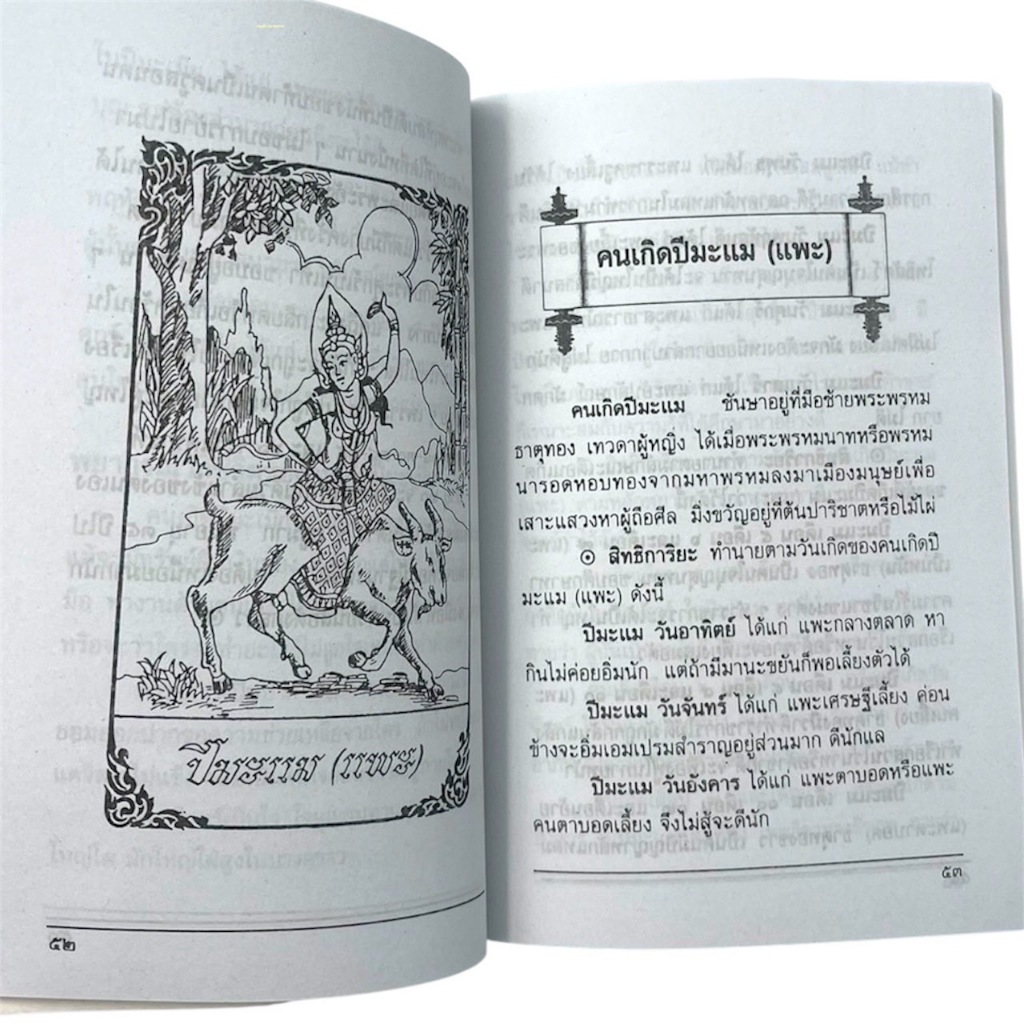 ปีมะแม (แพะ)
๕๒
คนเกิดปีมะแม (แพะ)
คนเกิดปีมะแม ชันษาอยู่ที่มือซ้ายพระพรหม
ธาตุทอง เทวดาผู้หญิง ได้เมื่อพระพรหมนาทหรือพรหม
นารอดหอบทองจากมหาพรหมลงมาเมืองมนุษย์เพื่อ
เสาะแสวงหาผู้ถือศีล มิ่งขวัญอยู่ที่ต้นปาริชาตหรือไม้ไผ่
๏ สิทธิการิยะ ทำนายตามวันเกิดของคนเกิดปี
มะแม (แพะ) ดังนี้
ปีมะแม วันอาทิตย์ ได้แก่ แพะกลางตลาด หา
กินไม่ค่อยอิ่มนัก แต่ถ้ามีมานะขยันก็พอเลี้ยงตัวได้
ปีมะแม วันจันทร์ ได้แก่ แพะเศรษฐีเลี้ยง ค่อน
ข้างจะอิ่มเอมเปรมสำราญอยู่ส่วนมาก ดีนักแล
ปีมะแม วันอังคาร ได้แก่ แพะตาบอดหรือแพะ
คนตาบอดเลี้ยง จึงไม่สู้จะดีนัก
๕๓